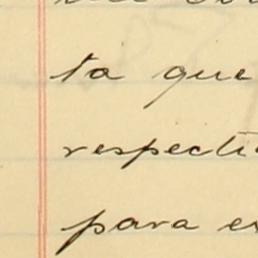 ta que
respecti
para es